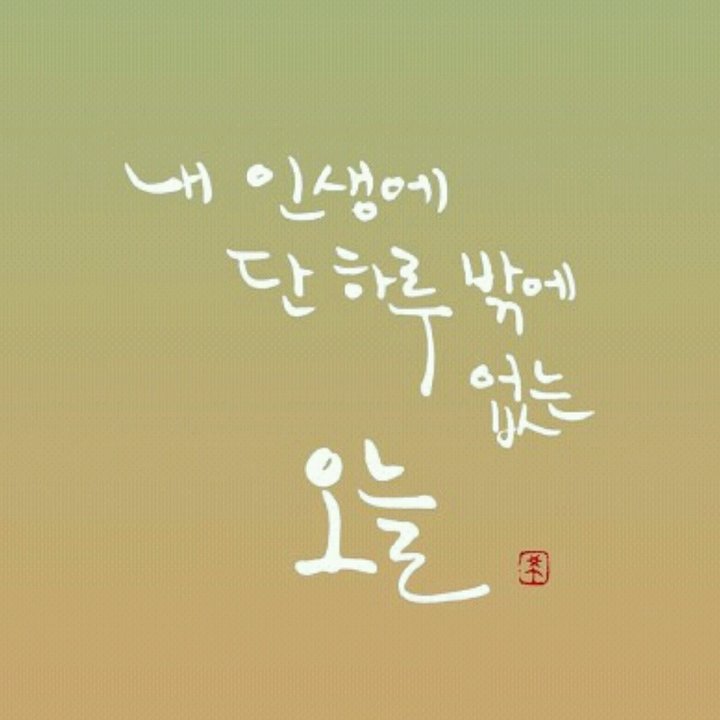 내 인생에
단 하루 밖에
없는
오늘